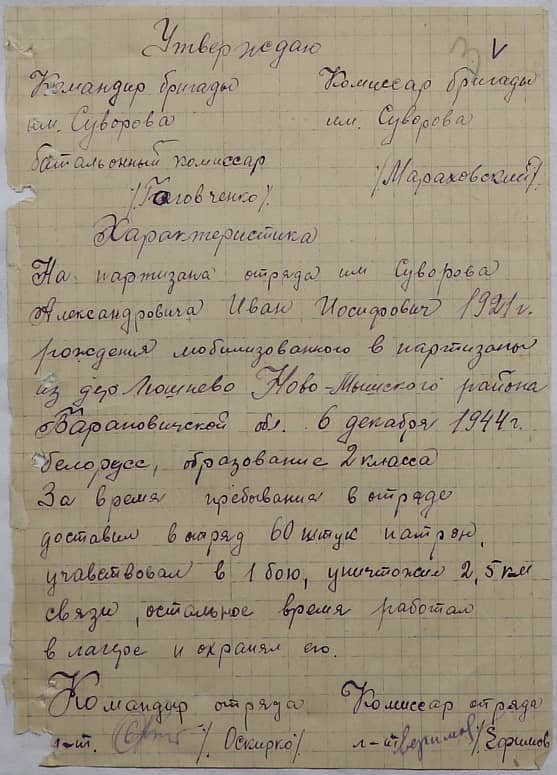 Утверждаю
Командир бригады
им. Суворова
батальонный комиссар
/Гаговченко/.
Комиссар бригады
им. Суворова
/Мараховский/.
Характеристика
На партизана отряда им Суворова
Александровича Иван Иосифович 1921г.
рождения мобилизованного в партизаны
из дер Люшнево Ново-Мышского района
Барановичской обл. 6 декабря 1944г.
белорусс, образование 2 класса
За время пребывания в отряде
доставил в отряд 60 штук патрон,
учавствовал в 1 бою, уничтожил 2,5 км
связи, остальное время работал
в лагере и охранял его.
Командир отряда
л-т. /. Оскирко/.
Комиссар отряда
л-т /Ефимов